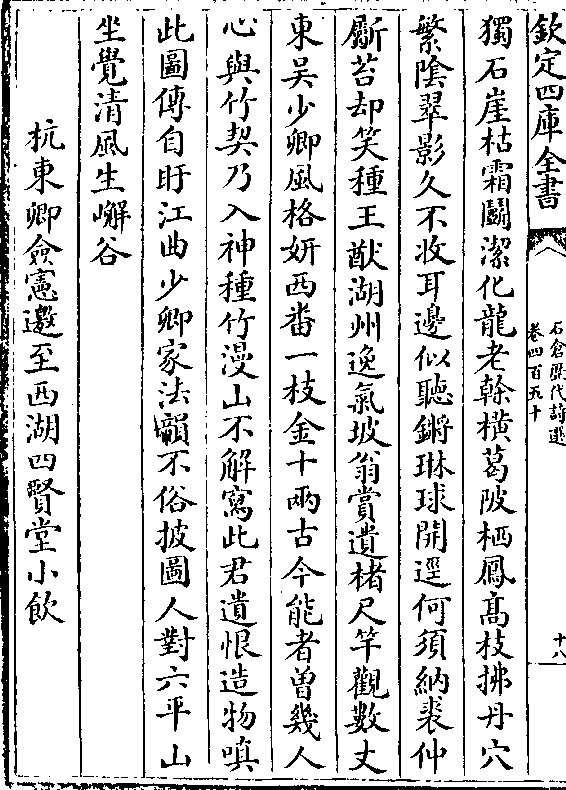 欽定四庫全書
石倉歷代詩選
卷四百五十
十八
獨石崖枯霜鬭潔化龍老榦橫葛陂栖鳳髙枝拂丹穴
繁陰翠影久不收耳邊似聽鏘琳球開逕何須納裘仲
斸苔却笑種王猷湖州逸氣坡翁賞遺楮尺竿觀數丈
東吴少卿風格妍西畨一枝金十兩古今能者曽幾人
心與竹契乃入神種竹漫山不解寫此君遺恨造物嗔
此圖傳自盱江曲少卿家法韻不俗披圖人對六平山
坐覺清風生嶰谷
杭東卿僉憲邀至西湖四賢堂小飲